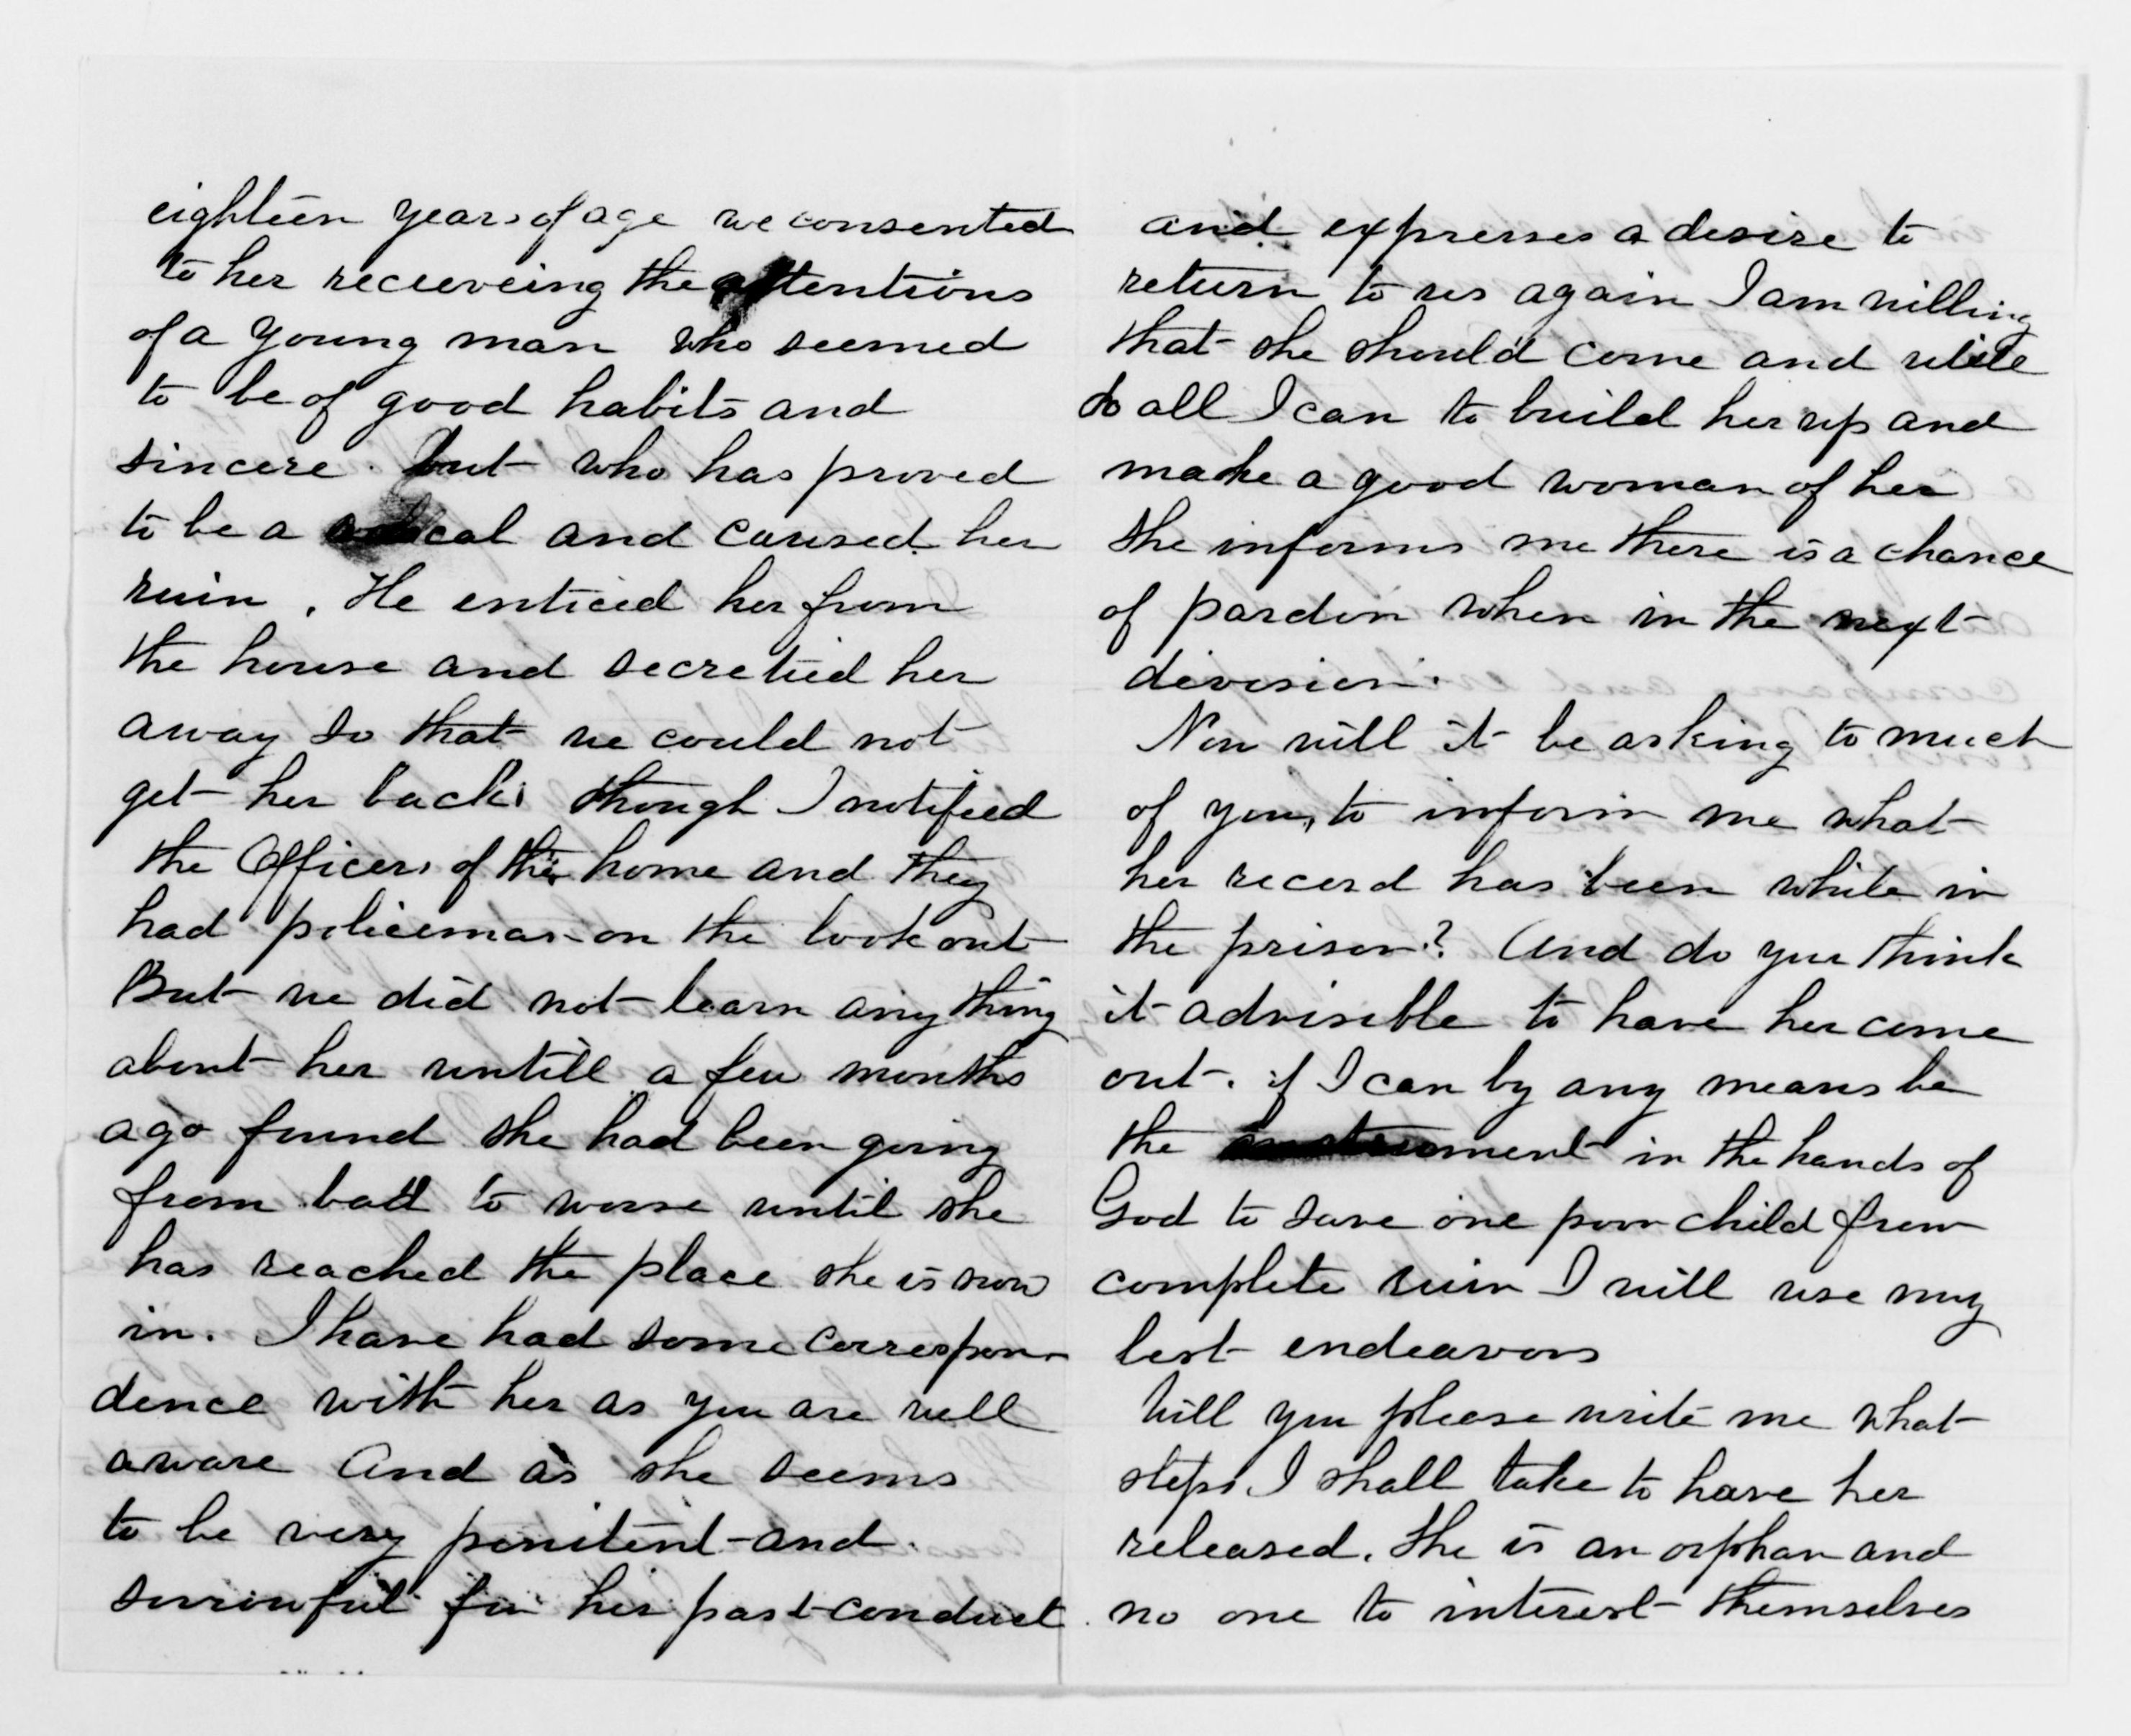 eighteen years of age we consented
to her recieveing the attentions
of a young man who seemed
to be of good habits and
sincere. but who has proved
to be a and caused her
ruin. He enticed her from
the house and secretied her
away so that we could not
get her back. though I notified
the Officers of the home and they
had policeman on the lookout
But we did not learn anything
about her untill a few months
ago found she had been going
from bad to worse until she
has reached the place she is now
in. I have had some correspon-
dence with her as you are well
aware And as she seems
to be very penitent and
sorrowful for her past conduct
and expresses a desire to
return to us again I am willing
that she should come and will
do all I can to build her up and
make a good woman of her
She informs me there is a chance
of pardon when in the next
division.
Now will it be asking to much
of you, to inform me what
her record has been while in
the prison? And do you think
it advisible to have her come
out. if I can by any means be
the instrument in the hands of
God to save one poor child from
complete ruin I will use my
best endeavors
Will you please write me what
steps I shall take to have her
released. She is an orphan and
no one to interest themselves